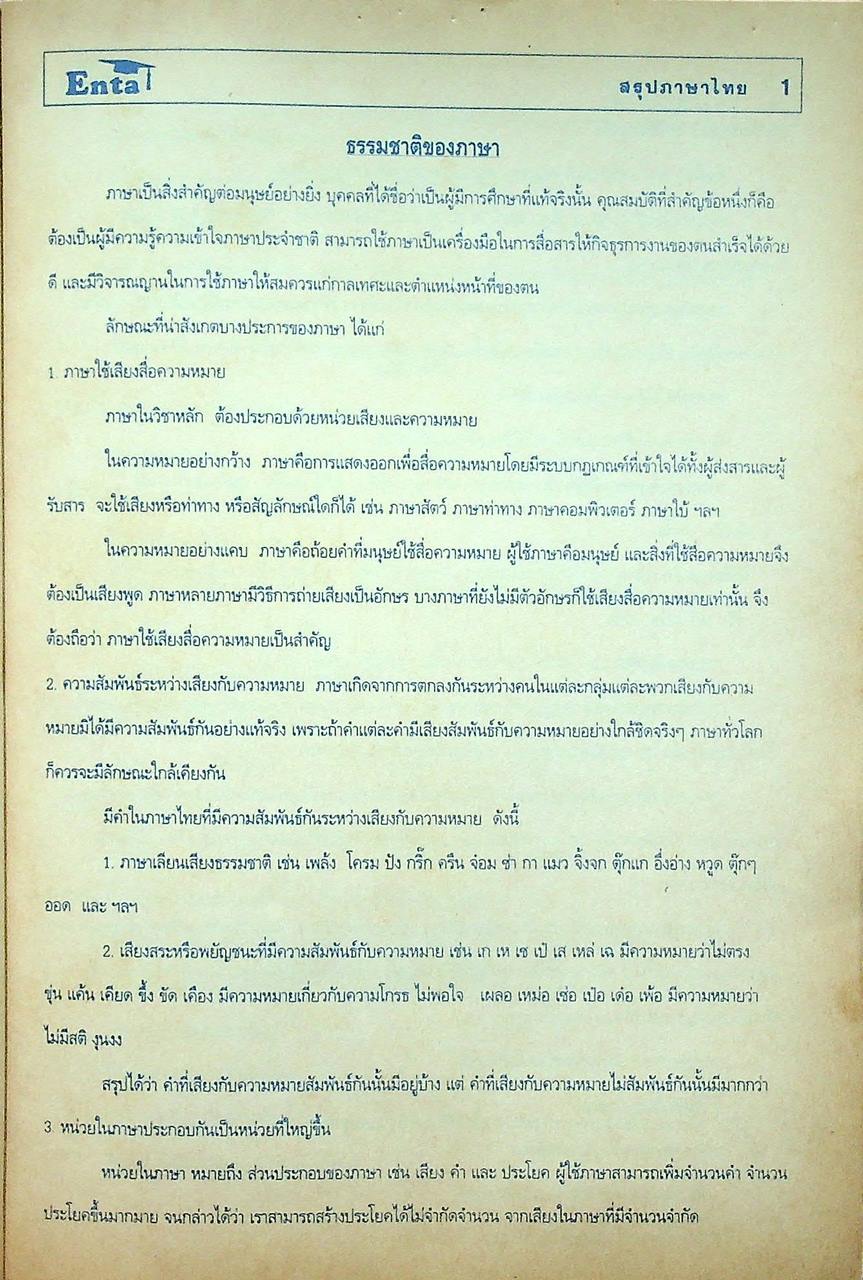 Enta
สรุปภาษาไทย 1
ธรรมชาติของภาษา
ภาษาเป็นสิ่งสำคัญต่อมนุษย์อย่างยิ่ง บุคคลที่ได้ชื่อว่าเป็นผู้มีการศึกษาที่แท้จริงนั้น คุณสมบัติที่สำคัญข้อหนึ่งก็คือ
ต้องเป็นผู้มีความรู้ความเข้าใจภาษาประจำชาติ สามารถใช้ภาษาเป็นเครื่องมือในการสื่อสารให้กิจธุรการงานของตนสำเร็จได้ด้วย
ดี และมีวิจารณญานในการใช้ภาษาให้สมควรแก่กาลเทศะและตำแหน่งหน้าที่ของตน
ลักษณะที่น่าสังเกตบางประการของภาษา ได้แก่
1. ภาษาใช้เสียงสื่อความหมาย
ภาษาในวิชาหลัก ต้องประกอบด้วยหน่วยเสียงและความหมาย
ในความหมายอย่างกว้าง ภาษาคือการแสดงออกเพื่อสื่อความหมายโดยมีระบบกฏเกณฑ์ที่เข้าใจได้ทั้งผู้ส่งสารและผู้
รับสาร จะใช้เสียงหรือท่าทาง หรือสัญลักษณ์ใดก็ได้ เช่น ภาษาสัตว์ ภาษาท่าทาง ภาษาคอมพิวเตอร์ ภาษาใบ้ ฯลฯ
ในความหมายอย่างแคบ ภาษาคือถ้อยคำที่มนุษย์ใช้สื่อความหมาย ผู้ใช้ภาษาคือมนุษย์ และสิ่งที่ใช้สื่อความหมายจึง
ต้องเป็นเสียงพูด ภาษาหลายภาษามีวิธีการถ่ายเสียงเป็นอักษร บางภาษาที่ยังไม่มีตัวอักษรก็ใช้เสียงสื่อความหมายเท่านั้น จึง
ต้องถือว่า ภาษาใช้เสียงสื่อความหมายเป็นสำคัญ
2. ความสัมพันธ์ระหว่างเสียงกับความหมาย ภาษาเกิดจากการตกลงกันระหว่างคนในแต่ละกลุ่มแต่ละพวกเสียงกับความ
หมายมิได้มีความสัมพันธ์กันอย่างแท้จริง เพราะถ้าคำแต่ละคำมีเสียงสัมพันธ์กับความหมายอย่างใกล้ชิดจริงๆ ภาษาทั่วโลก
ก็ควรจะมีลักษณะใกล้เคียงกัน
มีคำในภาษาไทยที่มีความสัมพันธ์กันระหว่างเสียงกับความหมาย ดังนี้
1. ภาษาเลียนเสียงธรรมชาติ เช่น เพล้ง โครม ปัง กริ๊ก ครืน จ๋อม ซ่า กา แมว จิ้งจก ตุ๊กแก อึ่งอ่าง หวูด ตุ๊กๆ
ออด และ ฯลฯ
2. เสียงสระหรือพยัญชนะที่มีความสัมพันธ์กับความหมาย เช่น เก เห เซ เป๋ เส เหล่ เฉ มีความหมายว่าไม่ตรง
ขุ่น แค้น เคียด ขึ้ง ขัด เคือง มีความหมายเกี่ยวกับความโกรธ ไม่พอใจ เผลอ เหม่อ เซ่อ เป๋อ เด๋อ เพ้อ มีความหมายว่า
ไม่มีสติ งุนงง
สรุปได้ว่า คำที่เสียงกับความหมายสัมพันธ์กันนั้นมีอยู่บ้าง แต่ คำที่เสียงกับความหมายไม่สัมพันธ์กันนั้นมีมากกว่า
3. หน่วยในภาษาประกอบกันเป็นหน่วยที่ใหญ่ขึ้น
หน่วยในภาษา หมายถึง ส่วนประกอบของภาษา เช่น เสียง คำ และ ประโยค ผู้ใช้ภาษาสามารถเพิ่มจำนวนคำ จำนวน
ประโยคขึ้นมากมาย จนกล่าวได้ว่า เราสามารถสร้างประโยคได้ไม่จำกัดจำนวน จากเสียงในภาษาที่มีจำนวนจำกัด